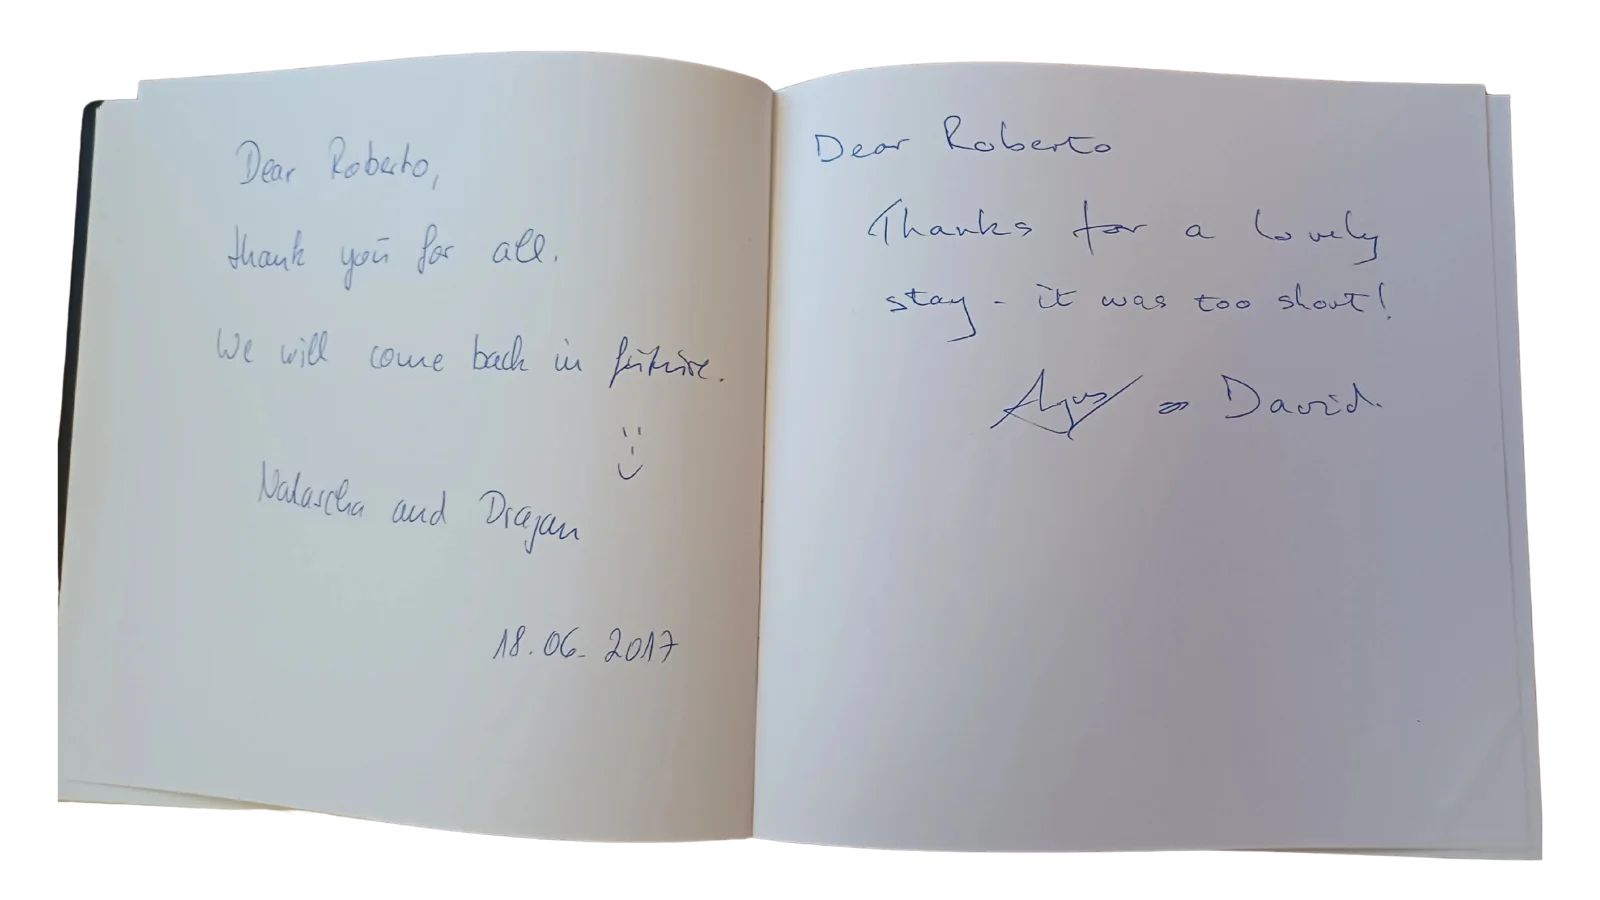 Dear Roberto,
thank you for all.
We will come back in future.
Natascha and Dragan
18.06.2017
Dear Roberto
Thanks for a lovely
stay - it was too short!
David.